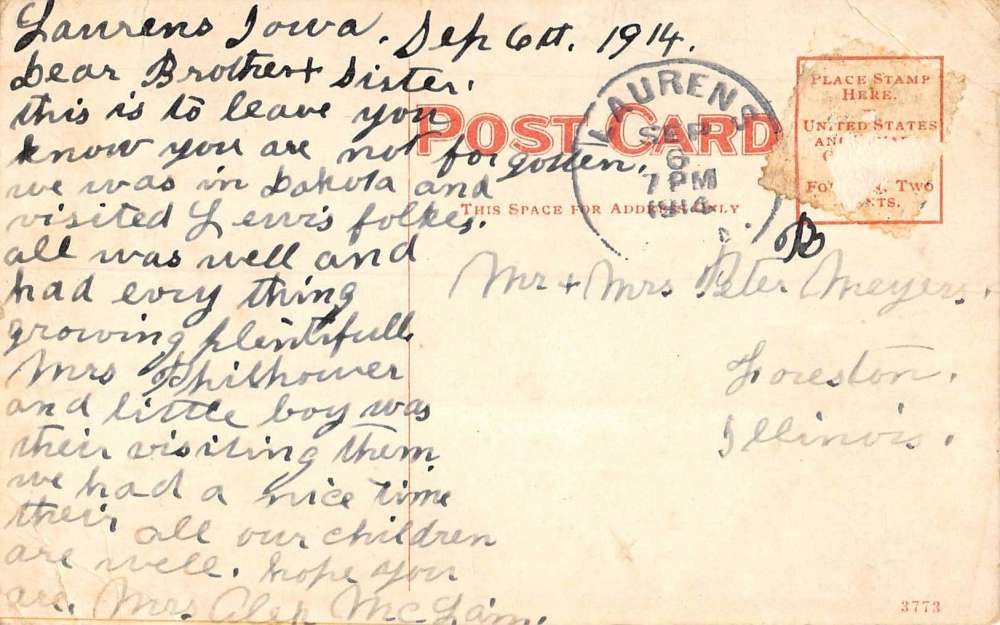 Laurens Iowa. Sep 6st. 1914.
Dear Brother + Sister.
this is to leave you
know you are not forgotten.
we was in Dakota and
visited Lewis folkes.
all was well and
had evry thing
growing plentifull
Mrs Philhower
and little boy was
their visiting them
we had a nice time
their all our children
are well. hope you
are. Mrs Alex McLain.
POST CARD
THIS SPACE FOR ADDRESS ONLY
LAURENS
SEP
6
7 PM
1914
PLACE STAMP
HERE.
UNITED STATES
TWO
Mr + Mrs Peter Meyers.
Foreston.
Illinois.
3773